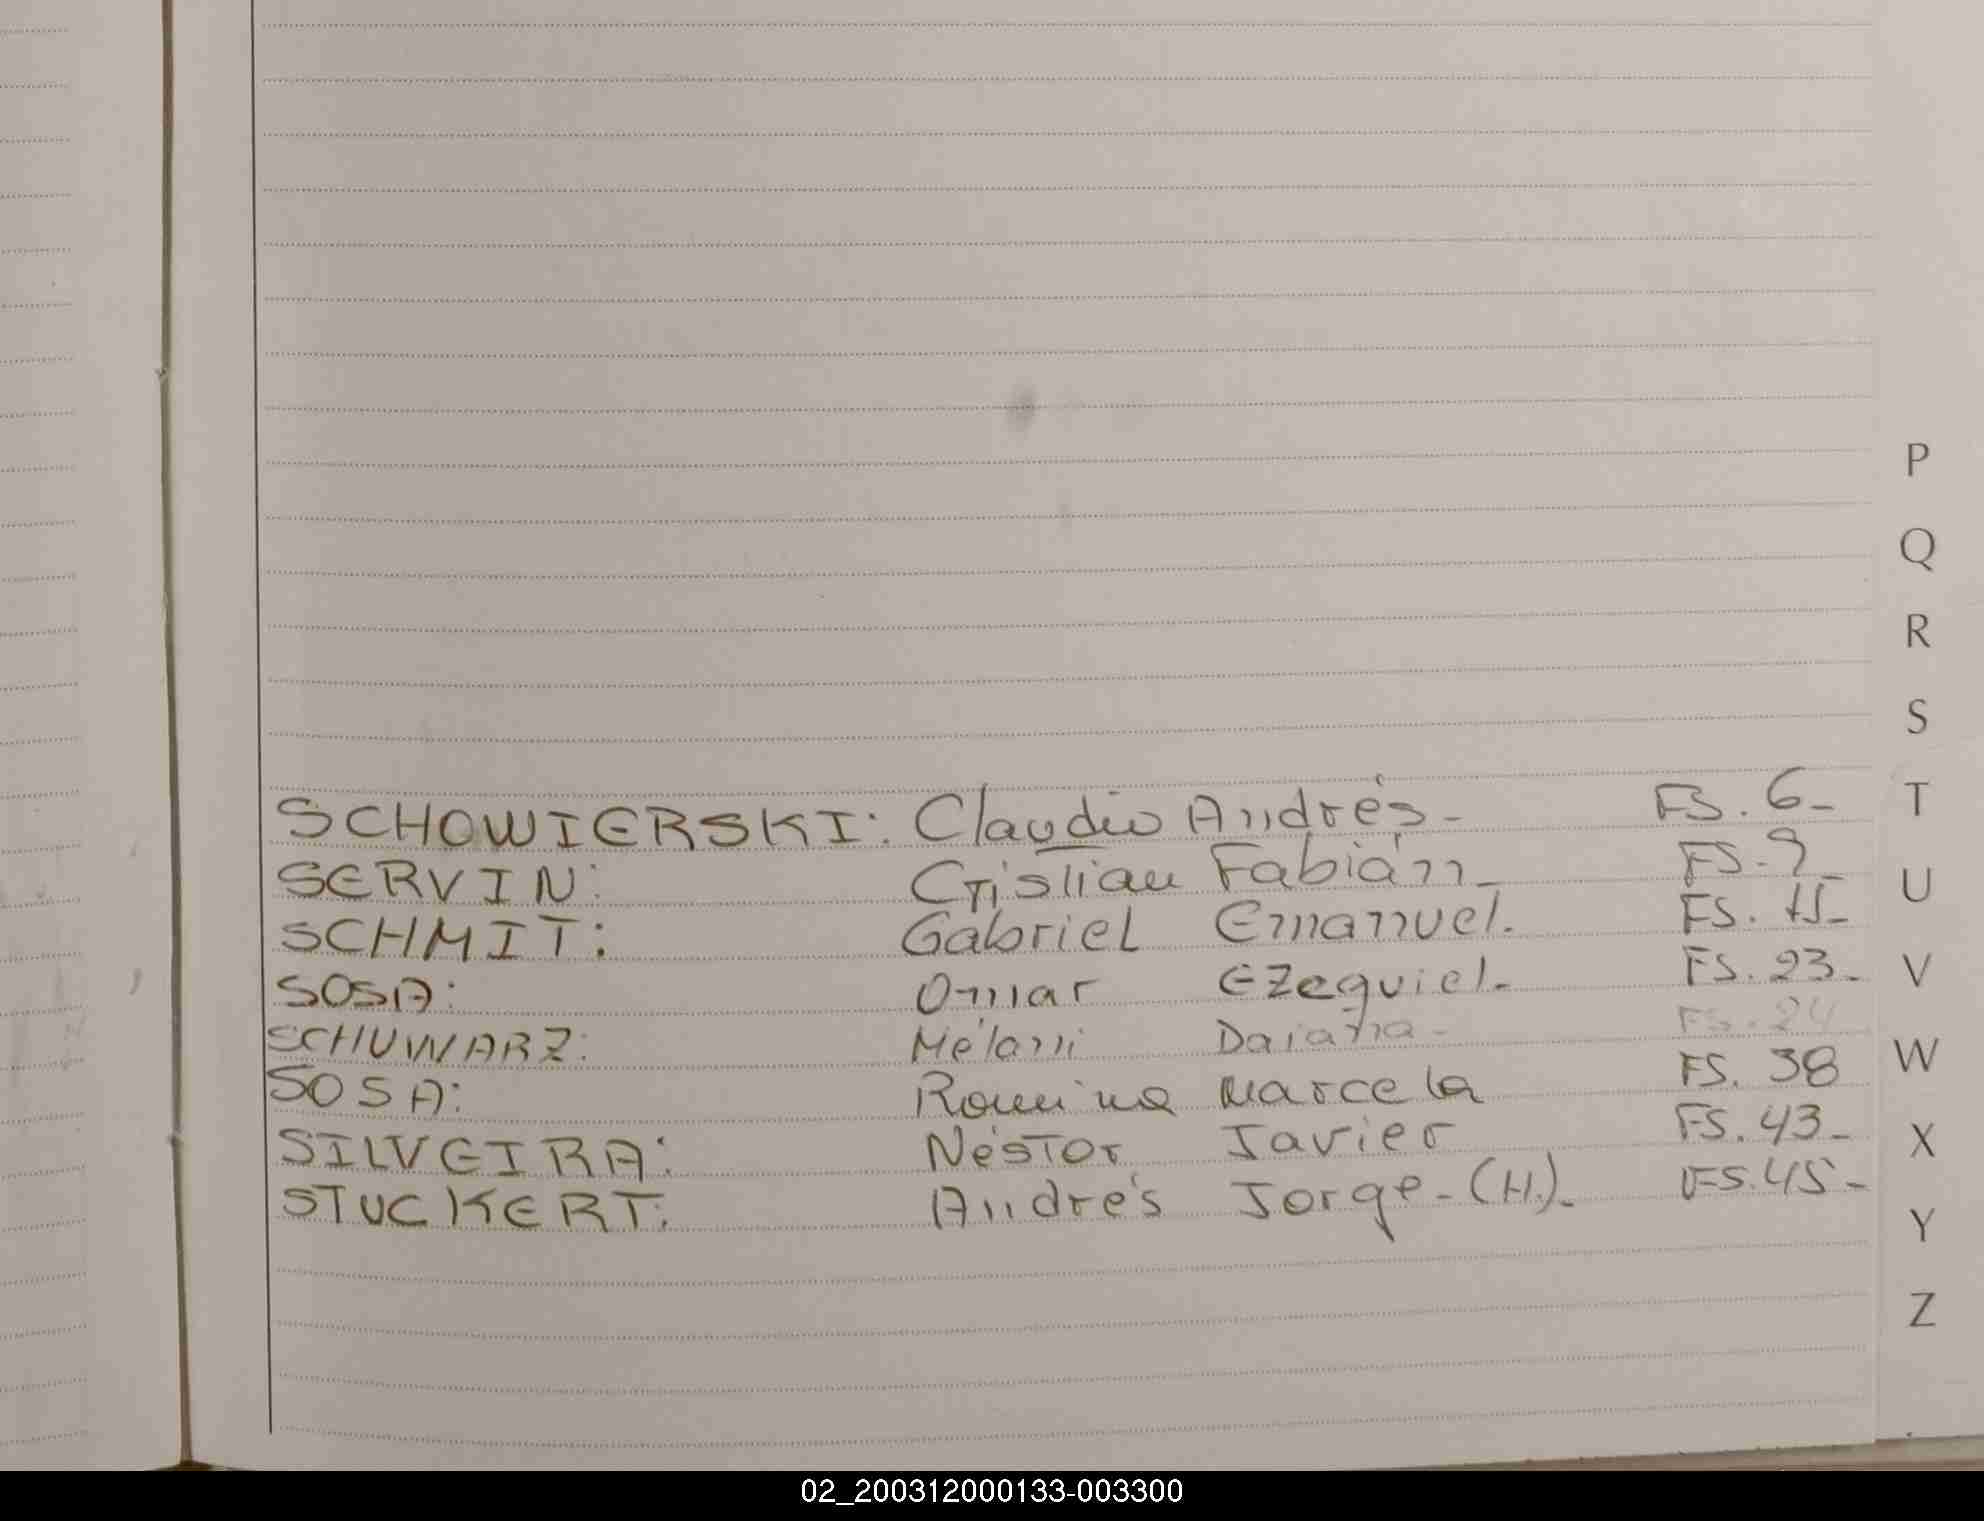 SCHOWIERSKI: Claudio Andrés- FS. 6-
SERVIN: Cristian Fabián- FS. 9-
SCHMIT: Gabriel Emanuel. FS. 15-
SOSA: Omar Ezequiel- FS. 23-
SCHUWARZ: Mélani Daiana- FS. 24
SOSA: Romina Marcela FS. 38
SILVEIRA: Néstor Javier FS. 43-
STUCKERT: Andrés Jorge-(H.)- FS. 45-
P
Q
R
S
T
U
V
W
X
Y
Z
02_200312000133-003300